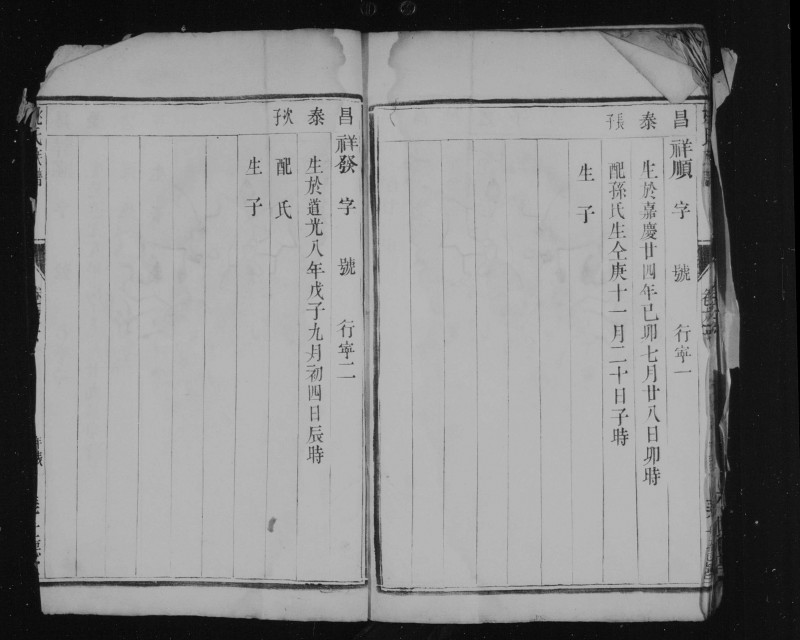 昌泰長子
祥順字 號 行寧一
生於嘉慶廿四年己卯七月廿八日卯時
配孫氏生仝庚十一月二十日子時
生子
昌泰次子
祥發字 號 行寧二
生於道光八年戊子九月初四日辰時
配氏
生子